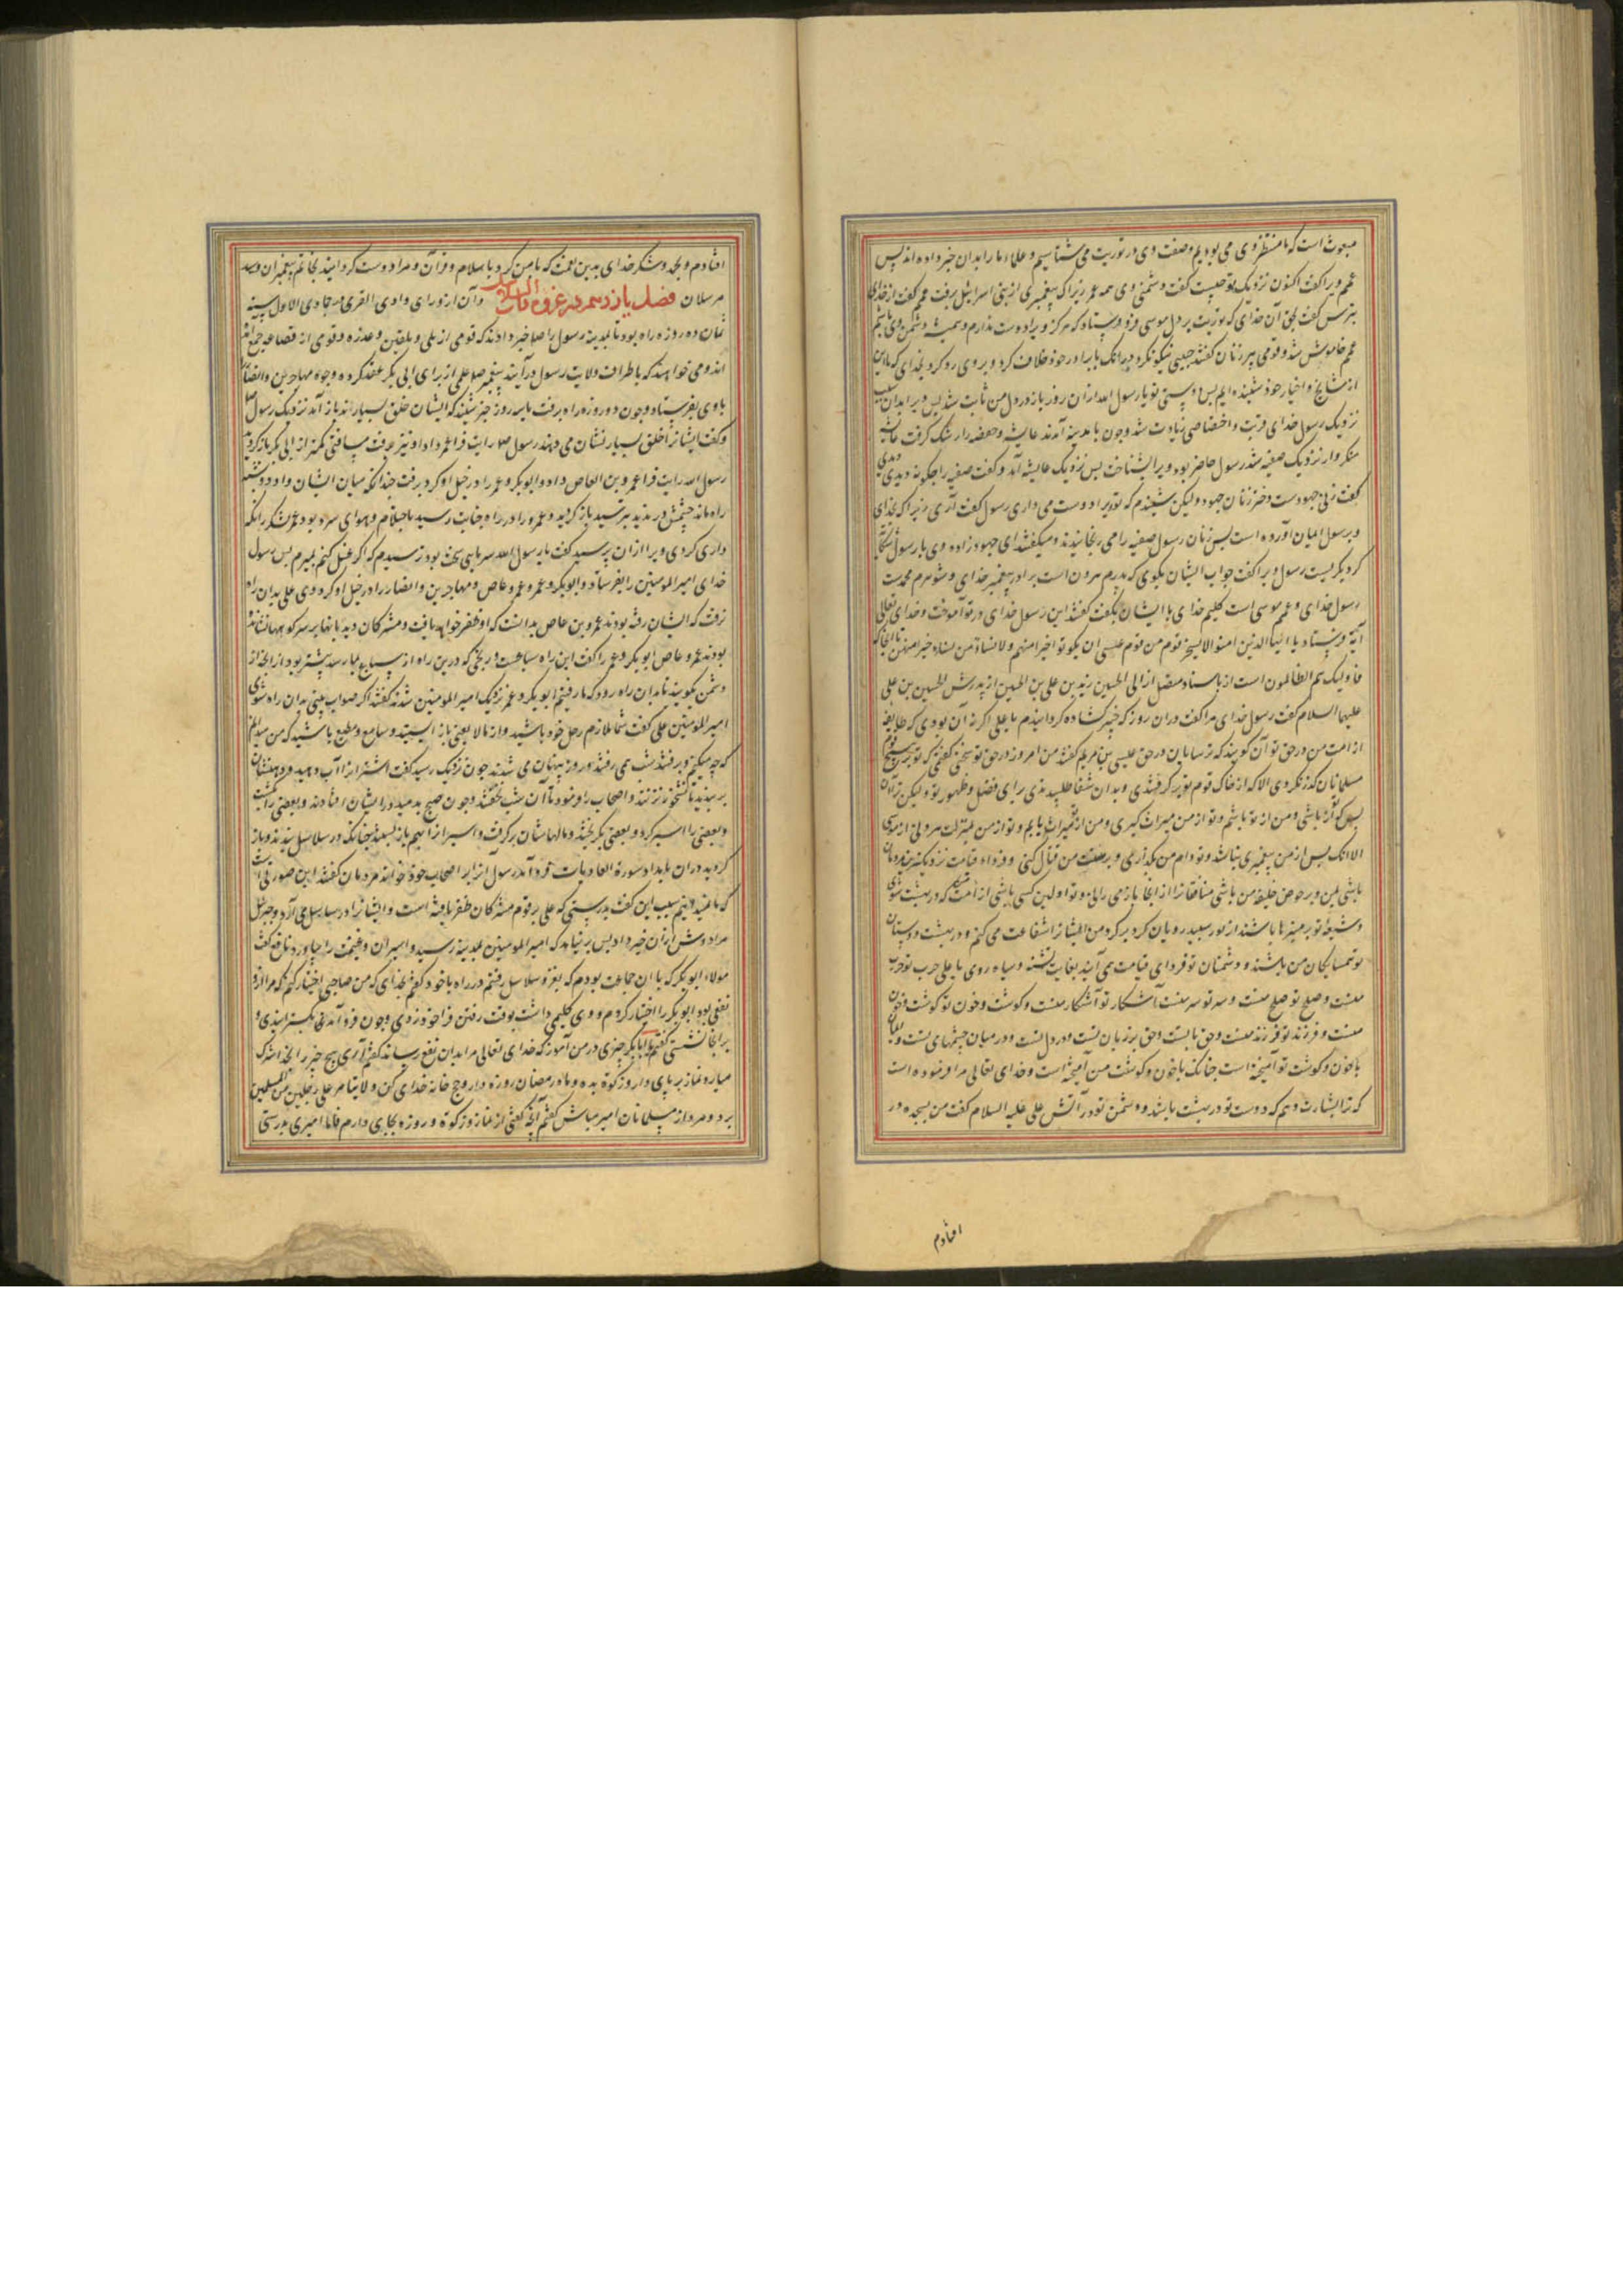 مبعوث است که ما منتظر وی می بودیم وصفت وی در توریت می شناسیم و علماء ما را بدان خبر داده اند پس
عمم ویرا گفت اکنون نزدیک تو چیست گفت دشمنی وی همه عمر زیرا که پیغمبری از بنی اسرائیل برفت عمم گفت از خدای
بترس گفت بحق آن خدای که توریت بر دل موسی فرو فرستاد که هرگز ویرا دوست ندارم و همیشه دشمن وی باشم
عمم خاموش شد و قومی پیر زنان گفتند حیی نیکو نکرد بدانک با برادر خود خلاف کرد و بر وی رد کرد بخدای که ما این
از مشایخ و اخیار خود شنیده ایم پس دوستی تو یا رسول الله از آن روز باز در دل من ثابت شد پس ویرا بدان سبب
نزدیک رسول خدای قربت و اختصاصی زیادت شد و چون با مدینه آمدند عایشه و حفصه را رشک گرفت عایشه
منکروار نزدیک صفیه شد رسول حاضر بود ویرا بشناخت پس نزدیک عایشه آمد و گفت صفیه را چگونه دیدی
گفت زنی جهودست دختر زنان جهود ولیکن شنیدم که تو ویرا دوست می داری رسول گفت آری زیرا که بخدای
و برسول ایمان آورده است پس زنان رسول صفیه را می رنجانیدند و میگفتند ای جهود زاده وی با رسول شکایت
کرد بگریست رسول ویرا گفت جواب ایشان بگوی که پدرم هرون است برادر پیغمبر خدای و شوهرم محمدست
رسول خدای و عمم موسی است کلیم خدای با ایشان بگفت گفتند این رسول خدای در تو آموخت و خدای تعالی
آیة فرستاد یا ایها الذین امنوا لا یسخر قوم من قوم عسی ان یکونوا خیرا منهم ولا نساء من نساء خیرا منهن تا آنجا که
فاولیک هم الظالمون است از باسناد متصل از ابی الحسین زید بن علی بن الحسین از پدرش الحسین بن علی
علیهما السلام گفت رسول خدای مرا گفت در آن روز که خیبر گشاده گردانیدم یا علی اگر نه آن بودی که طایفه
از امت من در حق تو آن گویند که ترسایان در حق عیسی بن مریم گفتند من امروز در حق تو سخنی گفتمی که تو بر هیچ قوم
مسلمانان گذر نکردی الا که از خاک قوم تو برگرفتندی و بدان شفا طلبیدندی برای فضل و طهور تو ولیکن ترا آن
بس که از من باشی و من از تو باشم و تو از من میراث گیری و من از تو میراث یابم و تو از من بمنزلت هرونی از موسی
الا آنک پس از من پیغمبری نباشد و تو وام من بگذاری و بر سنت من قتال کنی و فردای قیامت نزدیکترین مردمان
باشی بمن و بر حوض خلیفه من باشی منافقانرا از آنجا باز می رانی و تو اولین کسی باشی از امت من که در بهشت شوی
و شیعۀ تو بر منبرها باشند از نور سپید رویان گرد بر گرد من ایشانرا شفاعت می کنم و در بهشت دوستان
تو همسایگان من باشند و دشمنان تو فردای قیامت می آیند بغایت تشنه و سیاه روی یا علی حرب تو حرب
منست و صلح تو صلح منست و سر تو سر منست آشکار تو آشکار منست و گوشت و خون تو گوشت و خون
منست و فرزند تو فرزند منست و حق با تست و حق بر زبان تست و در دل تست و در میان چشمهای تست و ایمان
با خون و گوشت تو آمیخته است چنانک با خون و گوشت من آمیخته است و خدای تعالی مرا فرموده است
که ترا بشارت دهم که دوست تو در بهشت باشد و دشمن تو در آتش علی علیه السلام گفت من بسجده در
افتادم
افتادم و بحمد و شکر خدای بدین نعمت که با من کرد با سلام و قرآن و مرا دوست گردانید بخاتم پیغمبران و سید
مرسلان فصل یازدهم در غزوه ذات السلاسل و آن از ورای وادی القری در جمادی الاول سنه
ثمان ده روزه راه بود تا بمدینه رسول را صلعم خبر دادند که قومی از بلی و بلقین و عذره و قومی از قضاعه جمع آمده
اند و می خواهند که باطراف ولایت رسول درآیند پیغمبر صلعم علمی از برای ابی بکر عقد کرد و وجوه مهاجرین و انصار را
با وی بفرستاد و چون دو روزه راه برفت یا سه روز خبر شنید که ایشان خلق بسیارند باز آمد نزدیک رسول
و گفت ایشانرا خلق بسیار نشان می دهند رسول صلعم رایت فرا عمر داد او نیز برفت مسافتی کمتر از ابی بکر باز گردید
رسول الله رایت فرا عمرو بن العاص داد و ابوبکر و عمر را در خیل او کرد برفت چندانکه میان ایشان و او دو شبه
راه ماند چشمش بدیدند بترسید باز گردید و عمرو را در راه جنابت رسید باحتلام و هوای سرد بود
داری کردی ویرا از آن پرسید گفت یا رسول الله سرمایی سخت بود ترسیدم که اگر غسل کنم بمیرم پس رسول
خدای امیر المومنین را بفرستاد و ابوبکر و عمر و عمرو عاص و مهاجرین و انصار را در خیل او کرد وی علی بدان راه
نرفت که ایشان رفته بودند عمرو بن عاص بدانست که او ظفر خواهد یافت و مشرکان دیدبانها بر سر کوهها نشانده
بودند عمرو عاص ابوبکر و عمر را گفت این راه سباعست و رنجی که درین راه از سباع بما رسد بیشتر بود از آنچه از
دشمن بگویید تا بدان راه رود که ما رفتیم ابوبکر و عمر نزدیک امیر المومنین شدند گفتند اگر صواب بینی بدان راه شوی
امیر المومنین علی گفت شما ملازم رحل خود باشید و از ما لا یعنی باز ایستید و سامع و مطیع باشید که من میدانم
که چه میکنم برفتند شب می رفتند و روز پنهان می شدند چون نزدیک رسید گفت اشترانرا آب دهید و دهنشان
بربندید تا نشخور نزنند و اصحاب را فرمود تا آن شب نخفتند و چون صبح بدمید در ایشان افتادند و بعضی را بکشت
و بعضی را اسیر کرد و بعضی بگریختند و مالهاشان برگرفت و اسیرانرا بهم باز بستند چنانک در سلاسل بندند و باز
گردید در آن بامداد سورة العادیات فرود آمد رسول آنرا بر اصحاب خود خواند مردمان گفتند این صورتی است
که ما نشنیده ایم سبب این گفت بدرستی که علی بر قوم مشرکان ظفر یافته است و ایشانرا در سلاسل می آرد و جبرئیل
مرا دوش از آن خبر داد پس برنیامد که امیر المومنین بمدینه رسید و اسیران و غنیمت را بیاورد نافع گفت
مولاء ابوبکر که با آن جماعت بودم که بغزو سلاسل رفتم در راه با خود گفتم بخدای که من صاحبی اختیار کنم که مرا از او
نفعی بود ابوبکر را اختیار کردم و وی گلیمی داشت بوقت رفتن فرا خود زدی و چون فرود آمدی بگسترانیدی و
بر آنجا نشستی گفتم یا ابابکر چیزی در من آموز که خدای تعالی مرا بدان نفع رساند گفتم آری هیچ چیز را بخدا شرک
میار و نماز بر پای دار و زکوة بده و ماه رمضان روزه دار و حج خانه خدای کن و لا یتامر علی رجلین من المسلمین
بر دو مرد از مسلمانان امیر مباش گفتم آنچ گفتی از نماز و زکوة و روزه بجای دارم فاما امیری بدرستی